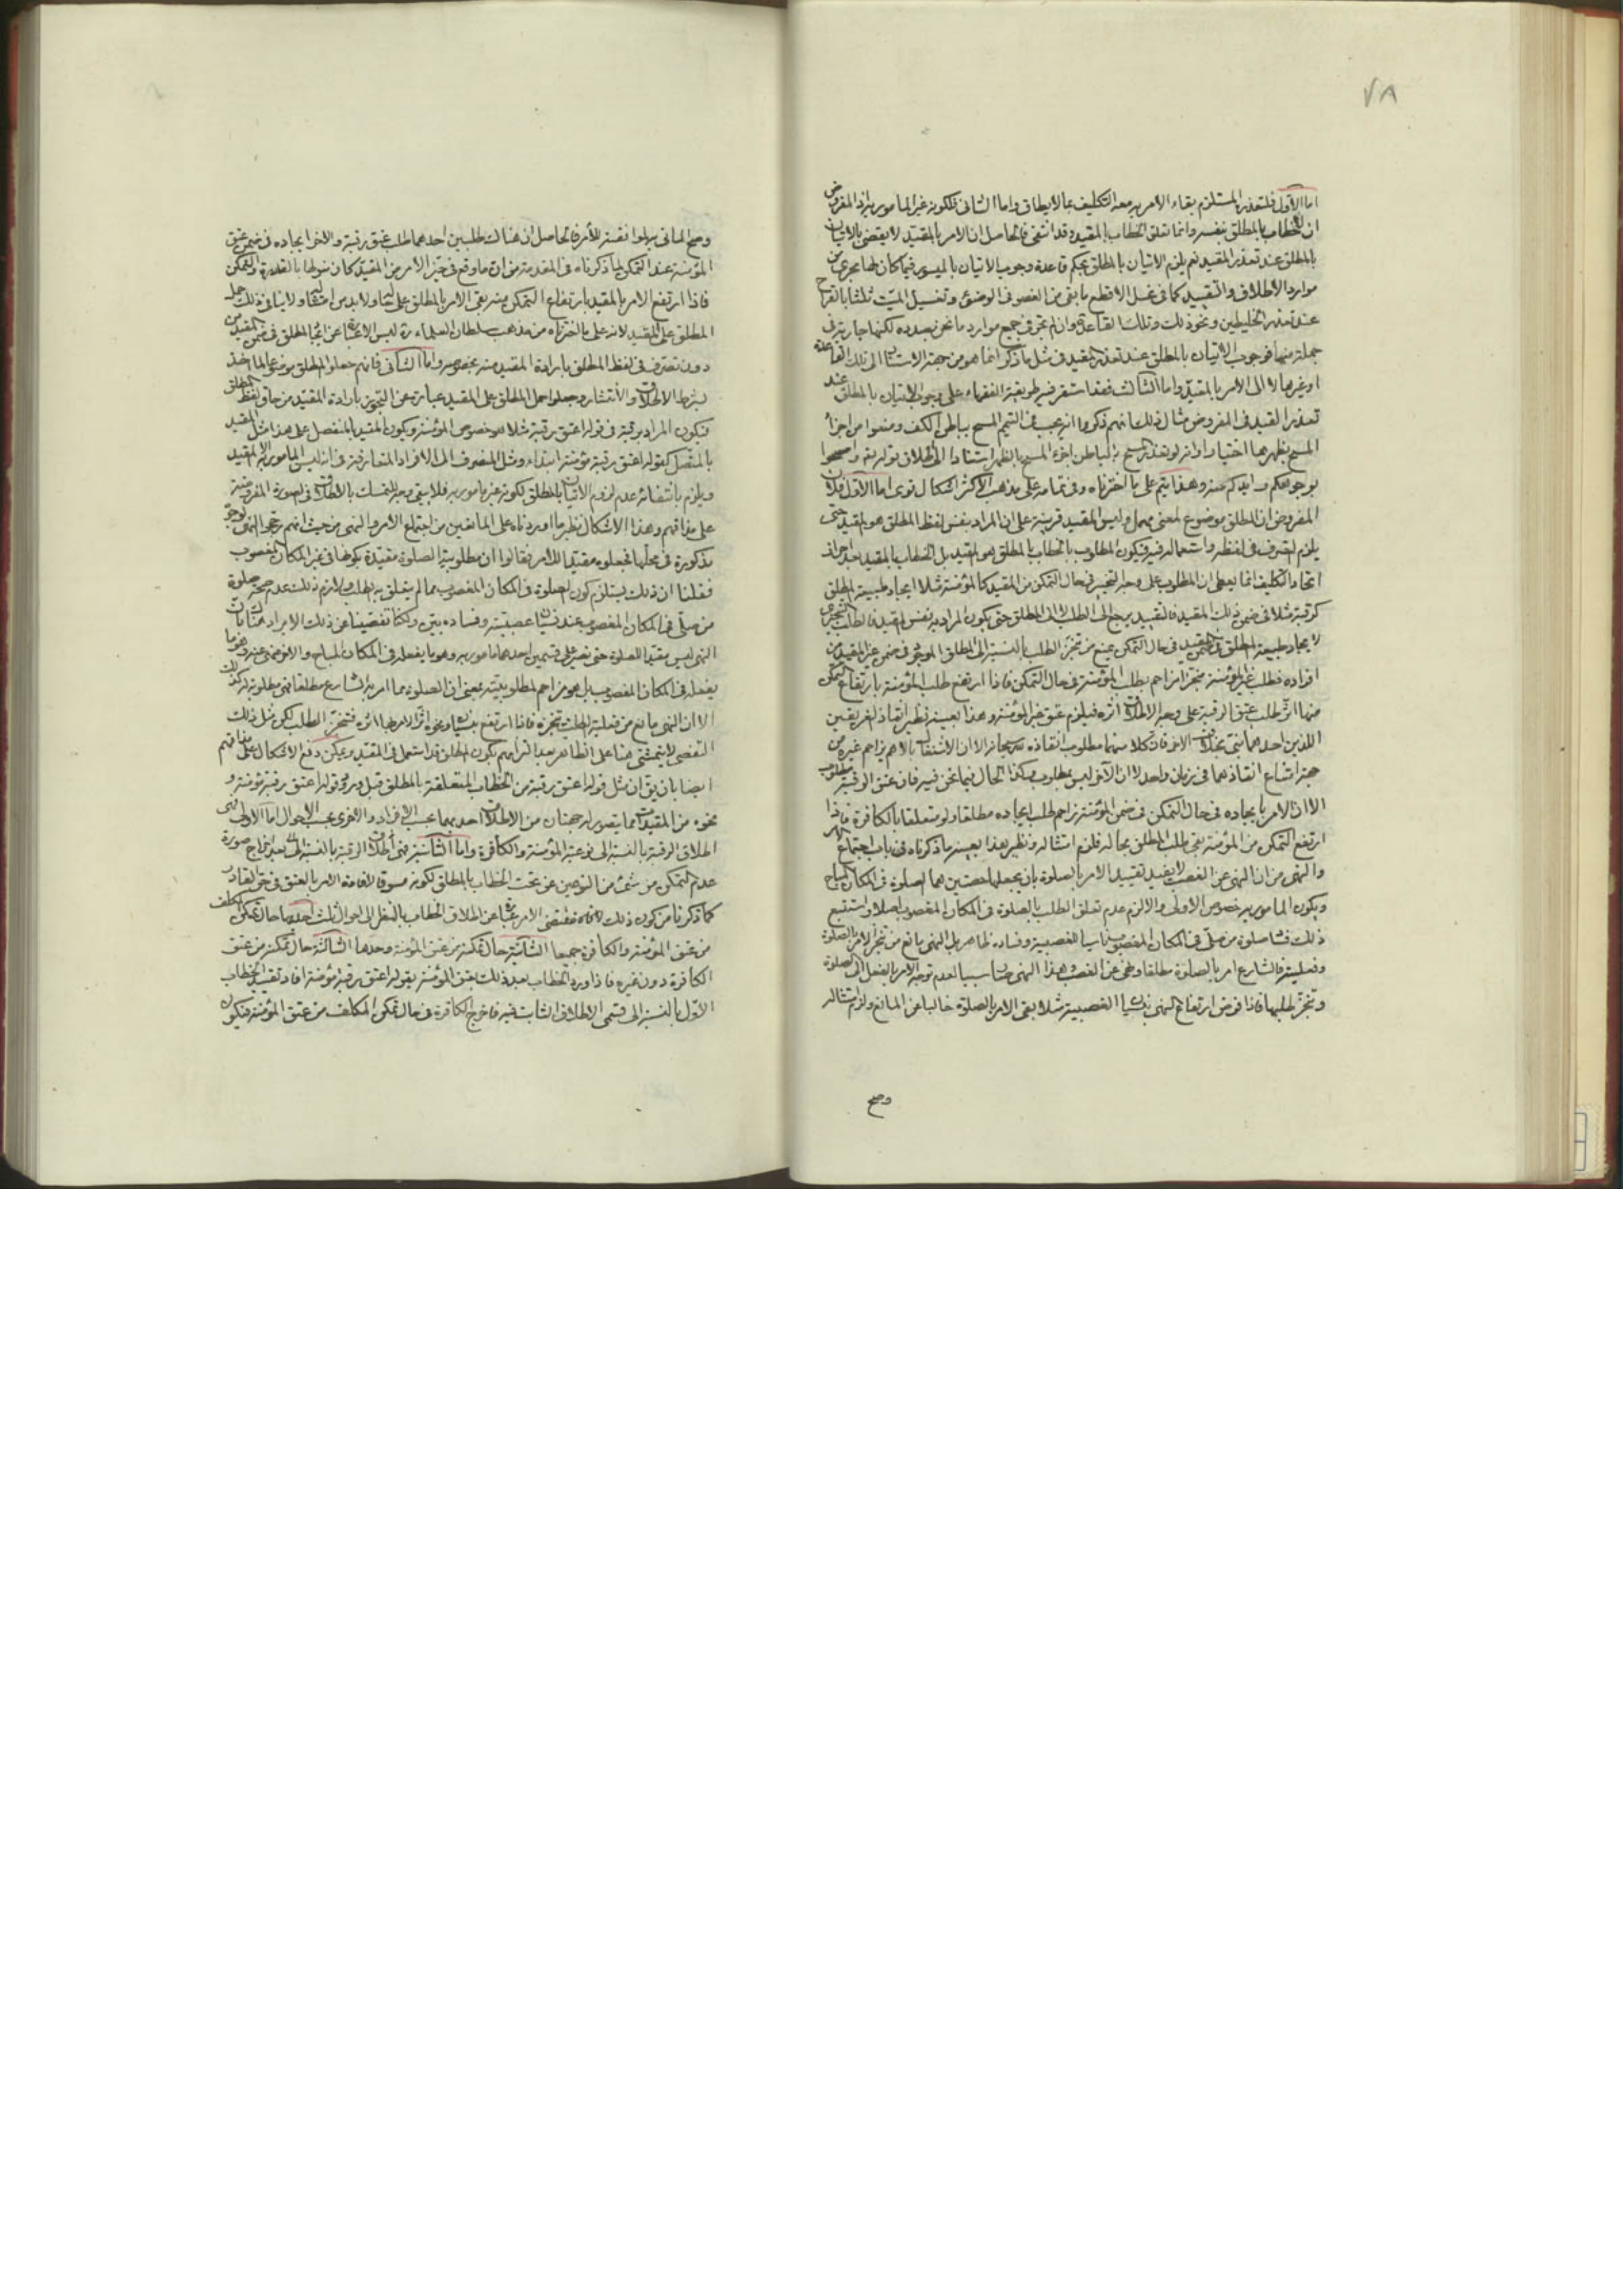 ٧٨
اما الاول فلتعذره المستلزم بقاء الامر به معه التكليف بما لا يطاق واما الثانى فلكونه غير المامور به اذ المفروض
ان الخطاب بالمطلق بنفسه وانما تعلق الخطاب بالمقيد وقد انتفى فالحاصل ان الامر بالمقيد لا يقضى بالاتيان
بالمطلق عند تعذر المقيد نعم يلزم الاتيان بالمطلق بحكم قاعدة وجوب الاتيان بالميسور فيما كان لها مجرى من
موارد الاطلاق والتقييد كما فى غسل الاقطع ما بقى من العضو فى الوضوء وتغسيل الميت ثلثا بالقراح
عند تعذر الخليطين ونحو ذلك وتلك القاعدة وان لم تجر فى جميع موارد ما نحن بصدده لكنها جارية فى
جملة منها فوجوب الاتيان بالمطلق عند تعذر المقيد فى مثل ما ذكر انما هو من جهة الاستناد الى تلك القاعدة
او غيرها لا الى الامر بالمقيد واما الثالث فقد استقر فيه طريقة الفقهاء على وجوب الاتيان بالمطلق عند
تعذر القيد فى المفروض مثال ذلك انهم ذكروا انه يجب فى التيمم المسح بباطن الكف ومنعوا من اجزاء
المسح بظهرها اختيارا وانه لو تعذر المسح بالباطن اجزء المسح بالظهر استنادا الى اطلاق قوله تعالى وامسحوا
بوجوهكم وايديكم منه وهذا يتم على ما اخترناه وفى تمامه على مذهب الاكثر اشكال قوى اما الاول فلان
المفروض ان المطلق موضوع لمعنى مهمل وليس المقيد قرينة على ان المراد بنفس لفظ المطلق هو المقيد حتى
يلزم التصرف فى لفظه واستعماله فيه فيكون المطلوب بالخطاب بالمطلق هو المقيد بل الخطاب بالمقيد بعد احراز
اتحاد التكليف انما يعطى ان المطلوب على وجه التنجيز فى حال التمكن من المقيد كالمؤمنة مثلا ايجاد طبيعة المطلق
كرقبة مثلا فى ضمن ذلك المقيد فالتقييد يرجع الى الطلب لا الى المطلق حتى يكون المراد به نفس المقيد فالطلب التنجيزى
لايجاد طبيعة المطلق فى ضمن المقيد فى حال التمكن يمنع من تنجز الطلب بالنسبة الى المطلق الموجود فى ضمن غير المقيد من
افراده فطلب غير المؤمنة منجزا مزاحم بطلب المؤمنة فى حال التمكن فاذا ارتفع طلب المؤمنة بارتفاع التمكن
منها اثر طلب عتق الرقبة على وجه الاطلاق اثره فيلزم عتق غير المؤمنة وهذا بعينه نظير انقاذ الغريقين
اللذين احدهما نبى بخلاف الاخر فان كلا منهما مطلوب انقاذه الا ان الاشتغال بالاهم يزاحم غيره من
جهة امتناع انقاذهما فى زمان واحد لا ان الاخر ليس بمطلوب وكذا الحال فيما نحن فيه فان عتق الرقبة مطلوب
الا ان الامر بايجاده فى حال التمكن فى ضمن المؤمنة زاحم طلب ايجاده مطلقا ولو متعلقا بالكافرة فاذا
ارتفع التمكن من المؤمنة بقى طلب المطلق بحاله فلزم امتثاله ونظير هذا بعينه ما ذكرناه فى باب اجتماع الامر
والنهى من ان النهى عن الغصب لا يفيد تقييد الامر بالصلوة بان يجعلها حصتين هما الصلوة فى المكان المباح
ويكون المامور به خصوص الاولى والا لزم عدم تعلق الطلب بالصلوة فى المكان المغصوب اصلا واستتبع
ذلك فساد صلوة من صلى فى المكان المغصوب ناسيا للغصبية وفساده ظاهر بل النهى مانع من تنجز الامر بالصلوة
وفعليته فالشارع امر بالصلوة مطلقا ونهى عن الغصب وهذا النهى صار سببا لعدم توجه الامر بالفعل الى الصلوة
وتنجز طلبها فاذا فرض ارتفاع النهى بنسيان الغصبية مثلا بقى الامر بالصلوة خاليا عن المانع ولزم امتثاله
وصح
وصح الماتى به لموافقته للامر فالحاصل ان هناك طلبين احدهما طلب عتق رقبة والاخر ايجاده فى ضمن عتق
المؤمنة عند التمكن لما ذكرناه فى المقدمة من ان ما وقع فى حيز الامر من المقيد كان منوطا بالقدرة والتمكن
فاذا ارتفع الامر بالمقيد بارتفاع التمكن منه بقى الامر بالمطلق على حاله ولابد من امتثاله ولا ينافى ذلك حمل
المطلق على المقيد لانه على ما اخترناه من مذهب سلطان العلماء ره ليس الا عبارة عن ايجاد المطلق فى ضمن المقيد من
دون تصرف فى لفظ المطلق بارادة المقيد منه بخصوصه واما الثانى فانهم جعلوا المطلق موضوعا لما اخذ
بشرط الاطلاق والانتشار وجعلوا حمل المطلق على المقيد عبارة عن التجوز بارادة المقيد من حاق لفظ المطلق
فيكون المراد برقبة فى قوله اعتق رقبة مثلا هو خصوص المؤمنة ويكون المقيد بالمنفصل على هذا مثل المقيد
بالمتصل كقوله اعتق رقبة مؤمنة ابتداء ومثل المنصرف الى الافراد المتعارفة فى انه ليس المامور به الا المقيد
ويلزم بانتفائه عدم لزوم الاتيان بالمطلق لكونه غير مامور به فلا يبقى وجه للتمسك بالاطلاق فى الصورة المفروضة
على مذاقهم وهذا الاشكال نظير ما اوردناه على المانعين من اجتماع الامر والنهى من حيث انهم رجحوا النهى لوجوه
مذكورة فى محلها فجعلوه مقيدا للامر فقالوا ان مطلوبية الصلوة مقيدة بكونها فى غير المكان المغصوب
فقلنا ان ذلك يستلزم كون الصلوة فى المكان المغصوب مما لم يتعلق به طلب ولازم ذلك عدم صحة صلوة
من صلى فى المكان المغصوب عند نسيان غصبيته وفساده بين ولكنا تفصينا عن ذلك الايراد هناك بان
النهى ليس مقيدا للصلوة حتى تصير على قسمين احدهما مامور به وهو ما يفعله فى المكان المباح والاخر منهى عنه وهو ما
يفعله فى المكان المغصوب بل هو مزاحم لمطلوبيته بمعنى ان الصلوة مما امر به الشارع مطلقا فهى مطلوبة له كذلك
الا ان النهى مانع من فعلية الطلب وتنجزه فاذا ارتفع بنسيان ونحوه اثر الامر بها اثره فتنجز الطلب لكن مثل ذلك
التفصى لا يتمشى هنا على الظاهر بعد التزامهم بكون المطلق قد استعمل فى المقيد ويمكن دفع الاشكال على مذاقهم
ايضا بان يق ان مثل قوله اعتق رقبة من الخطاب المتعلقة بالمطلق قبل ورود قوله اعتق رقبة مؤمنة و
نحوه من المقيدات مما يتصور له جهتان من الاطلاق احديهما بحسب الافراد والاخرى بحسب الاحوال اما الاولى فهى
اطلاق الرقبة بالنسبة الى نوعيه المؤمنة والكافرة واما الثانية فهى اطلاق الرقبة بالنسبة الى بعد اخراج صورة
عدم التمكن من شئ من النوعين عن تحت الخطاب بالمطلق لكونه مسوقا لافادة الامر بالعتق فى حق القادر
كما ذكرنا من كون ذلك مقتضى الامر عبارة عن اطلاق الخطاب بالنظر الى احوال ثلث احدها حال تمكن المكلف
من عتق المؤمنة والكافرة جميعا الثانية حال تمكنه من عتق المؤمنة وحدها الثالثة حال تمكنه من عتق
الكافرة دون غيره فاذا ورد الخطاب بعد ذلك بعتق المؤمنة بقوله اعتق رقبة مؤمنة افاد تقييد الخطاب
الاول بالنسبة الى قسمى الاطلاق الثابت فيه فاخرج الكافرة فى حال تمكن المكلف من عتق المؤمنة فيكون